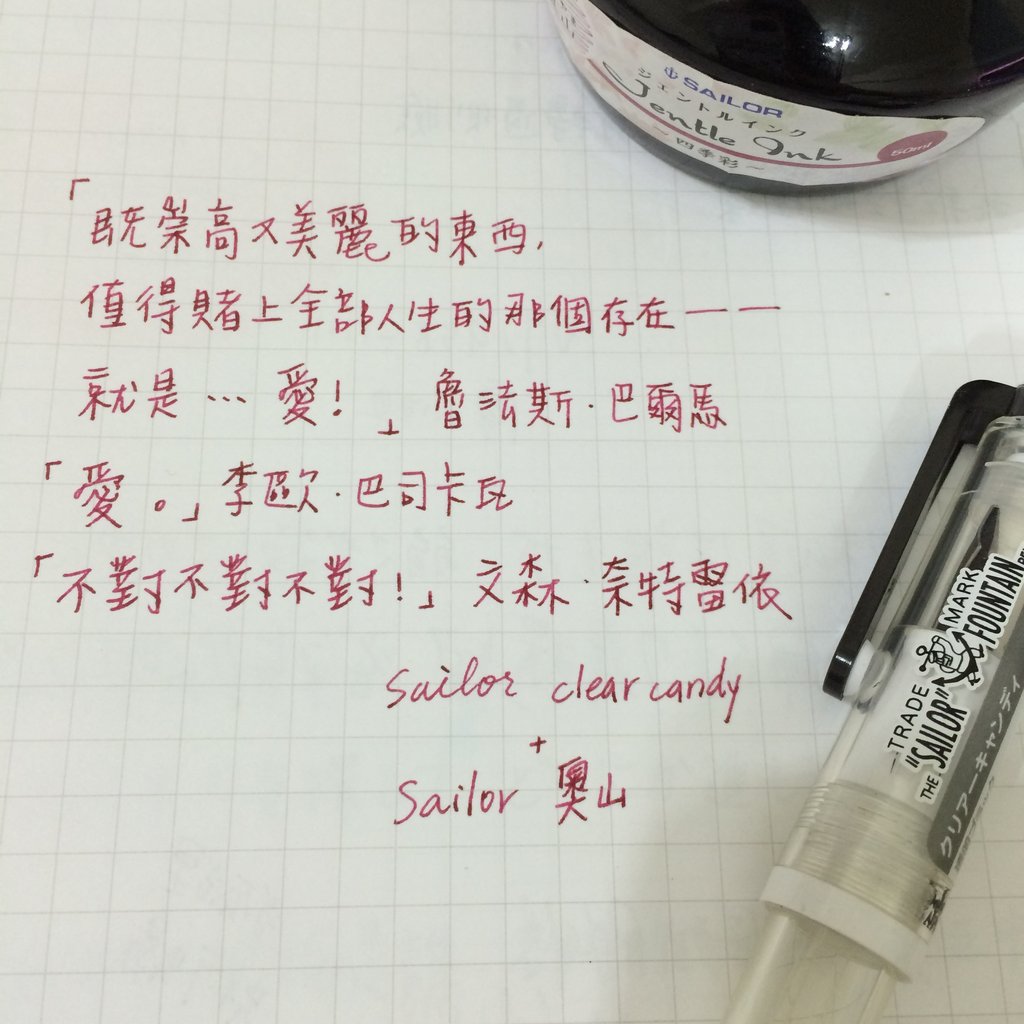 SAILOR
ジェントルインク
Jentle Ink
~四季彩~
50ml
「既崇高又美麗的東西,
值得賭上全部人生的那個存在——
就是…愛!」魯法斯·巴爾馬
「愛。」李歐·巴司卡瓦
「不對不對不對!」文森·奈特雷依
Sailor clear candy
+
Sailor 奧山
TRADE MARK
THE "SAILOR" FOUNTAIN
クリアーキャンディ